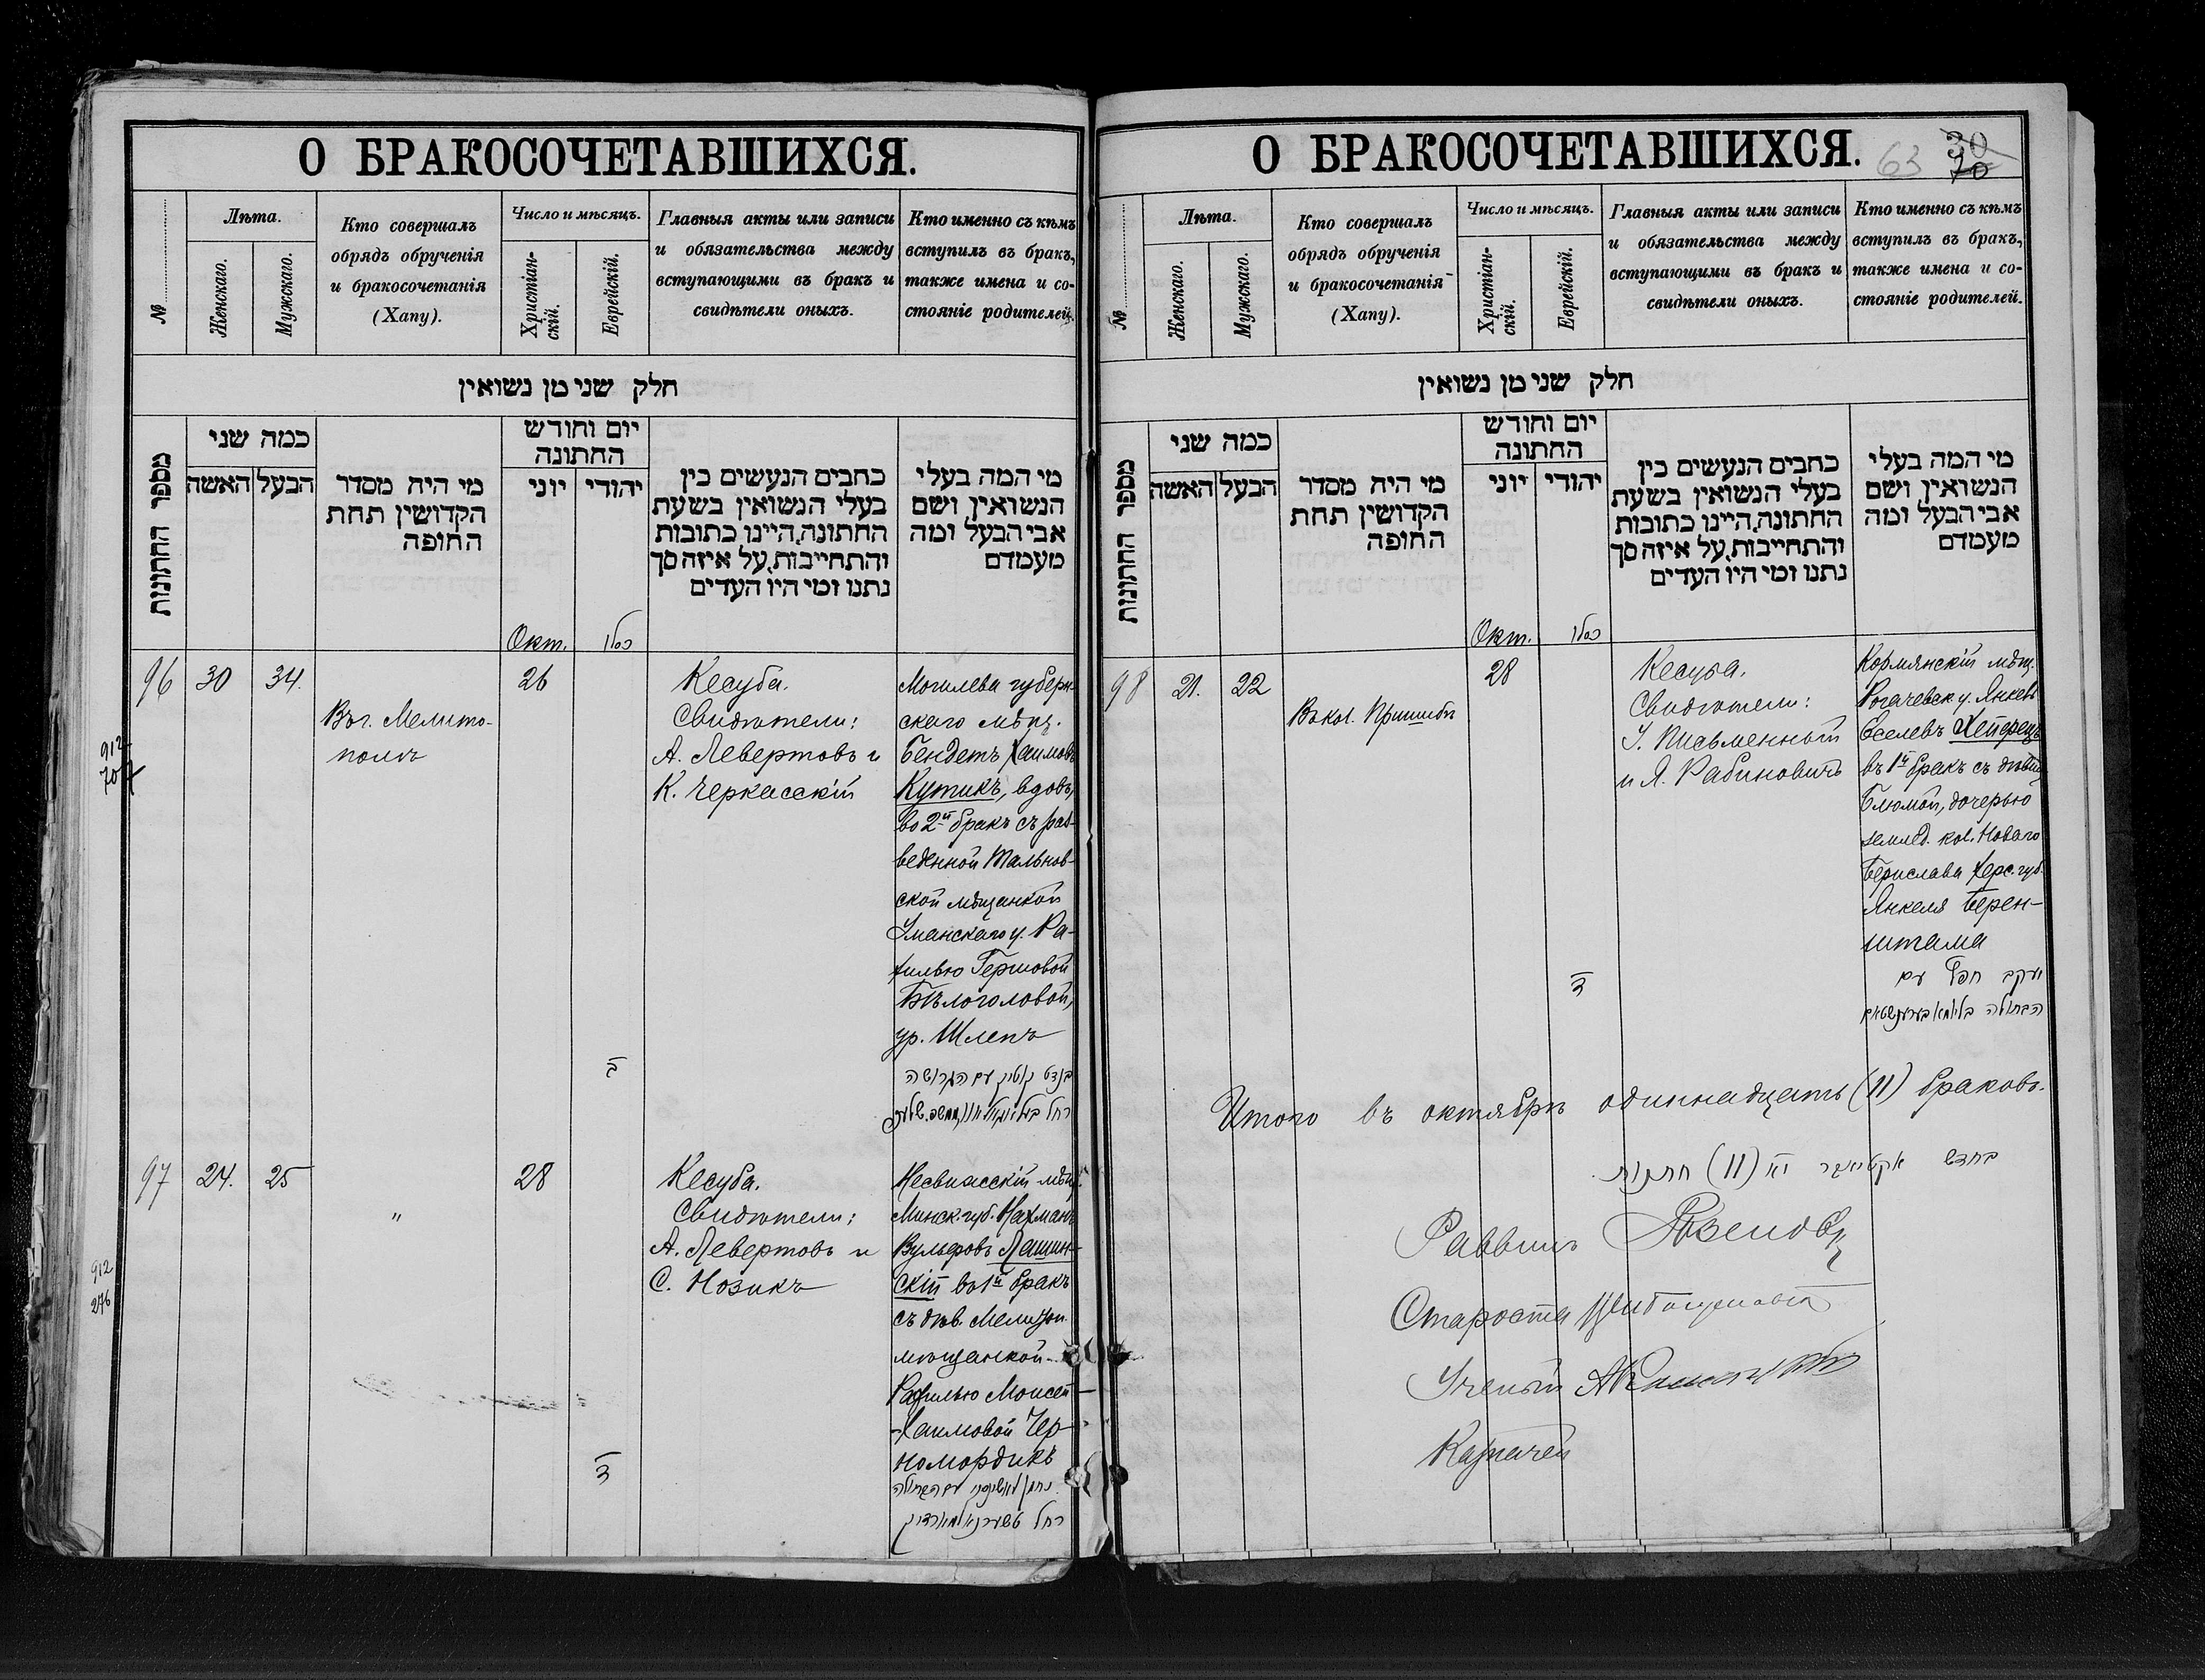 О БРАКОСОЧЕТАВШИХСЯ.
№
Лѣта.
Женскаго.
Мужскаго.
Кто совершалъ
обрядъ обрученія
и бракосочетанія
(Хапу).
Число и мѣсяцъ.
Христіан-
скій.
Еврейскій.
Главныя акты или записи
и обязательства между
вступающими въ бракъ и
свидѣтели оныхъ.
Кто именно съ кѣмъ
вступилъ въ бракъ,
также имена и со-
стояніе родителей.
חלק שני מן נשואין
מספר החתונות
כמה שני
האשה
הבעל
מי היה מסדר
הקדושין תחת
החופה
יום וחודש
החתונה
יוני
יהודי
כתבים הנעשים בין
בעלי הנשואין בשעת
החתונה, היינו כתובות
והתחייבות, על איזה סך
נתנו ומי היו העדים
מי המה בעלי
הנשואין ושם
אבי הבעל ומה
מעמדם
Окт.
כסלו
96
30
34.
Въ г. Мелито-
полѣ
26
ב
Кесуба.
Свидѣтели:
А. Левертовъ и
К. Черкасскій
Могилева губерн-
скаго мѣщ.
Бендетъ Хаимовъ
Кутикъ, вдовъ,
во 2й бракъ съ раз-
веденной Тальнов-
ской мѣщанкой
Уманскаго у. Ра-
хилью Гершовой
Бѣлоголовой,
ур. Шлепъ
בנדט קוטיק עם הגרושה
רחל
912
97
24.
25
"
28
ד
Кесуба.
Свидѣтели:
А. Левертовъ и
С. Нозикъ
Несвижскій мѣщ.
Минск. губ. Нахманъ
Вульфовъ Лашин-
скій въ 1й бракъ
съ дѣв. Мелитоп.
мѣщанкой
Рахилью Моисей-
-Хаимовой Чер-
номордикъ
נחמן לאשינסקי עם הבתולה
רחל טשערנאמארדיק
912
276
О БРАКОСОЧЕТАВШИХСЯ.
63
30
70
№
Лѣта.
Женскаго.
Мужскаго.
Кто совершалъ
обрядъ обрученія
и бракосочетанія
(Хапу).
Число и мѣсяцъ.
Христіан-
скій.
Еврейскій.
Главныя акты или записи
и обязательства между
вступающими въ бракъ и
свидѣтели оныхъ.
Кто именно съ кѣмъ
вступилъ въ бракъ,
также имена и со-
стояніе родителей.
חלק שני מן נשואין
מספר החתונות
כמה שני
האשה
הבעל
מי היה מסדר
הקדושין תחת
החופה
יום וחודש
החתונה
יוני
יהודי
כתבים הנעשים בין
בעלי הנשואין בשעת
החתונה, היינו כתובות
והתחייבות, על איזה סך
נתנו ומי היו העדים
מי המה בעלי
הנשואין ושם
אבי הבעל ומה
מעמדם
Окт.
כסלו
98
21.
22
Въ кол. Пришибъ
28
ד
Кесуба.
Свидѣтели:
У. Письменный
и Я. Рабиновичъ
Кормянскій мѣщ.
Рогачевск. у. Янкель
Еселевъ Хейфецъ
въ 1й бракъ съ дѣвиц.
Блюмой, дочерью
землед. кол. Новаго
Берислава Херс. губ.
Янкеля Берен-
штама
יעקב חפץ עם
הבתולה בלומא בערענשטאם
Итого въ октябрѣ одиннадцать (11) браковъ.
בחדש אקטיאבר יא (11) חתונות
Раввинъ
Староста
Ученый
Казначей